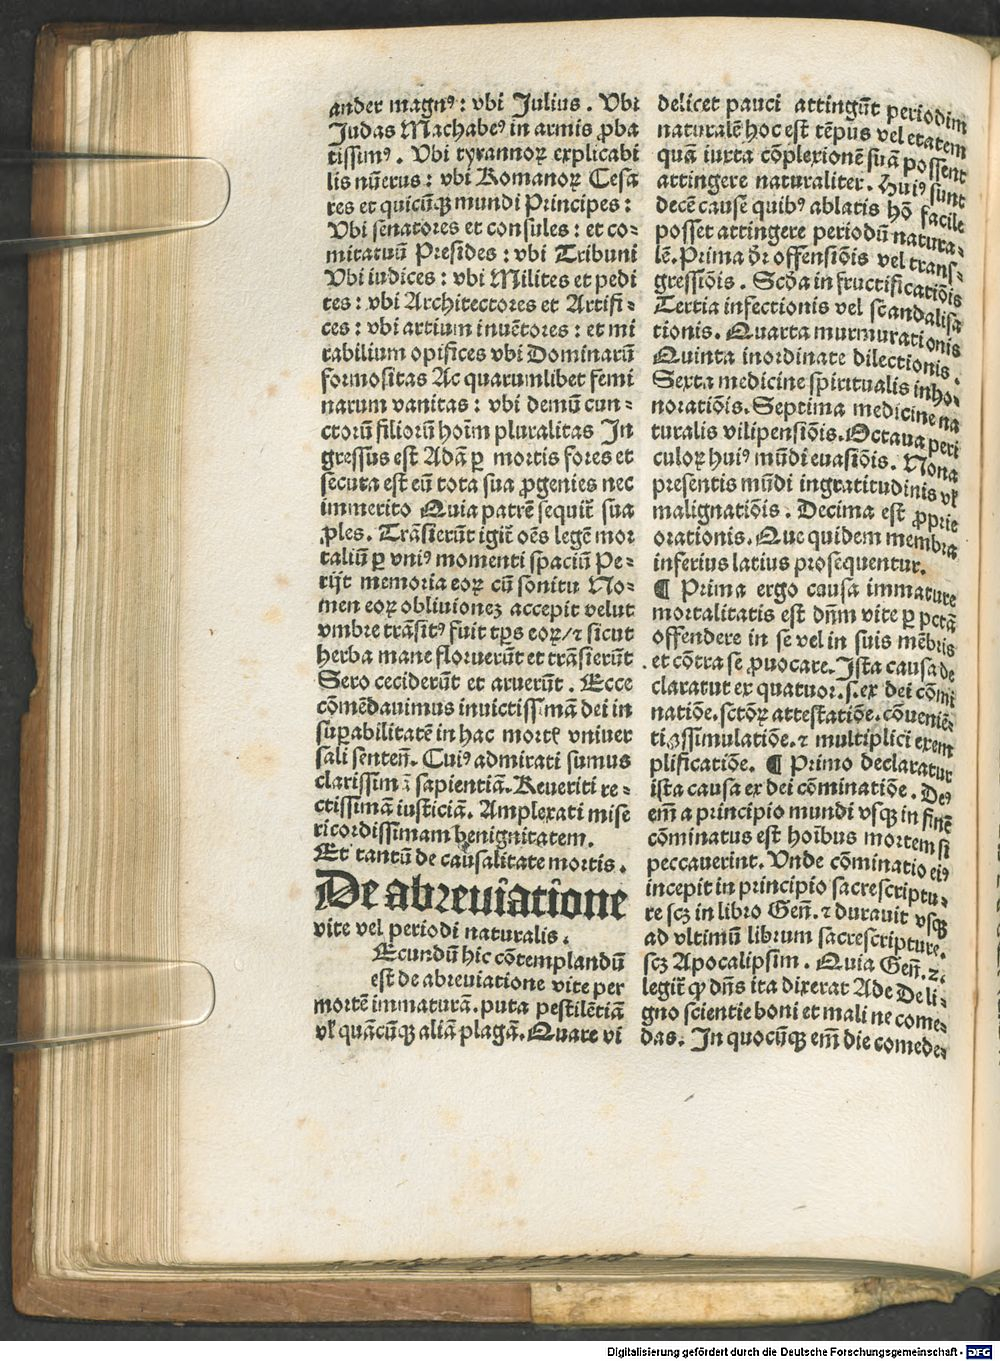 ander magnꝰ: vbi Julius. Vbi
Judas Machabeꝰ in armis ꝓba
tissimꝰ. Vbi tyrannoꝝ explicabi
lis nūerus: vbi Romanoꝝ Cesa
res et quicūqꝫ mundi Principes:
Vbi senatores et consules: et co⸗
mitatuū Presides: vbi Tribuni
Vbi iudices: vbi Milites et pedi
tes: vbi Architectores et Artifi⸗
ces: vbi artium inuētores: et mi
rabilium opifices vbi Dominarū
formositas Ac quarumlibet femi
narum vanitas: vbi demū cun⸗
ctorū filiorū hoīm pluralitas In
gressus est Adā ꝑ mortis fores et
secuta est eū tota sua ꝓgenies nec
immerito Quia patrē sequit᷑ sua
ꝓles. Trāsierūt igit᷑ oēs legē mor
taliū ꝑ vniꝰ momenti spaciū Pe⸗
rijt memoria eoꝝ cū sonitu No⸗
men eoꝝ obliuionez accepit velut
vmbre trāsitꝰ fuit tp̄s eoꝝ/⁊ sicut
herba mane floruerūt et trāsierūt
Sero ceciderūt et aruerūt. Ecce
cōmēdauimus inuictissimā dei in
suꝑabilitatē in hac morte vniuer
sali senten̄. Cuiꝰ admirati sumus
clarissimā sapientiā. Reueriti re⸗
ctissimā iusticiā. Amplexati mise
ricordissimam benignitatem.
Et tantū de causalitate mortis.
De abreuiatione
vite vel periodi naturalis.
Ecundū hic cōtemplandū
est de abreuiatione vite per
mortē immaturā. puta pestilētiā
vl̓ quācūqꝫ aliā plagā. Quare vi
delicet pauci attingūt periodim
naturalē hoc est tēpus vel etatem
quā iuxta cōplexionē suā possent
attingere naturaliter. Huiꝰ sunt
decē cause quibꝰ ablatis hō facile
posset attingere periodū natura⸗
lē. Prima dr̄ offensiōis vel trans⸗
gressiōis. Scd̓a infructificatiōis
Tertia infectionis vel scandalisa
tionis. Quarta murmurationis
Quinta inordinate dilectionis.
Sexta medicine spiritualis inho⸗
noratiōis. Septima medicine na
turalis vilipensiōis. Octaua peri
culoꝝ huiꝰ mūdi euasiōis. Nona
presentis mūdi ingratitudinis vl̓
malignatiōis. Decima est ꝓprie
orationis. Que quidem membra
inferius latius prosequentur.
¶ Prima ergo causa immature
mortalitatis est dn̄m vite ꝑ pctā
offendere in se vel in suis mēbris
et cōtra se ꝓuocare. Ista causa de
claratur ex quatuor. s. ex dei cōmi
natiōe. sctōꝝ attestatiōe. cōueniē⸗
ti assimulatiōe. ⁊ multiplici exem
plificatiōe. ¶ Primo declaratur
ista causa ex dei cōminatiōe. Deꝰ
em̄ a principio mundi vsqꝫ in finē
cōminatus est hoībus mortem si
peccauerint. Vnde cōminatio eiꝰ
incepit in principio sacrescriptu⸗
re scꝫ in libro Gen̄. ⁊ durauit vsqꝫ
ad vltimū librum sacrescripture.
scꝫ Apocalipsim. Quia Gen̄. ⁊.
legit᷑ ꝙ dn̄s ita dixerat Ade De li⸗
gno scientie boni et mali ne come⸗
das. In quocūqꝫ em̄ die comede⸗
Digitalisierung gefördert durch die Deutsche Forschungsgemeinschaft - DFG